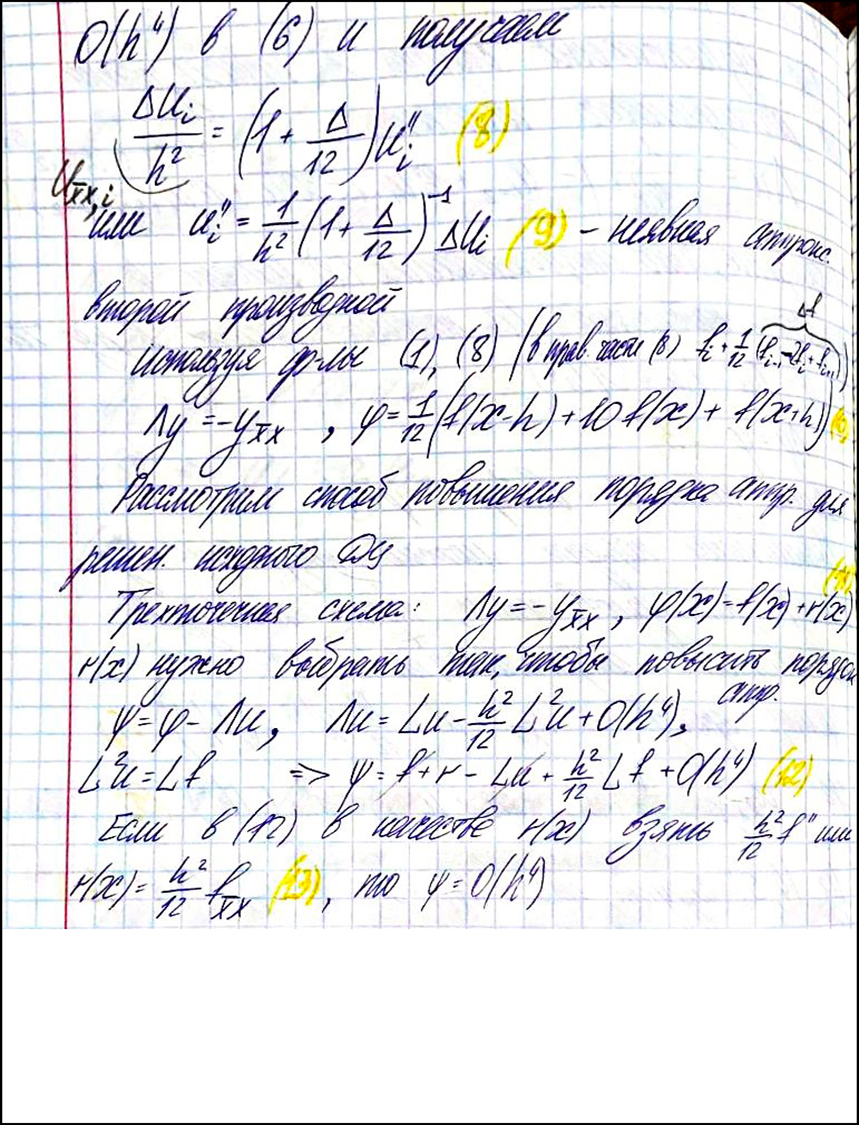 O(h⁴) в (6) и получаем
Δu_i / h² = (1 + Δ/12) u_i'' (8)
u_x̄x,i
или u_i'' = 1/h² (1 + Δ/12)^(-1) Δu_i (9) – неявная аппрокс.
второй производной
Δf
Используя ф-лы (1), (8) (в прав. части (8) f_i + 1/12 (f_{i-1} - 2f_i + f_{i+1}))
Λy = -y_x̄x , φ = 1/12 (f(x-h) + 10 f(x) + f(x+h)) (10)
Рассмотрим способ повышения порядка аппр. для
решен. исходного ДУ
(11)
Трехточечная схема: Λy = -y_x̄x , φ(x) = f(x) + r(x)
r(x) нужно выбрать так, чтобы повысить порядок
аппр.
ψ = φ - Λu, Λu = Lu - h²/12 L²u + O(h⁴),
L²u = Lf => ψ = f + r - Lu + h²/12 Lf + O(h⁴) (12)
Если в (12) в качестве r(x) взять h²/12 f'' или
r(x) = h²/12 f_x̄x (13), то ψ = O(h⁴)